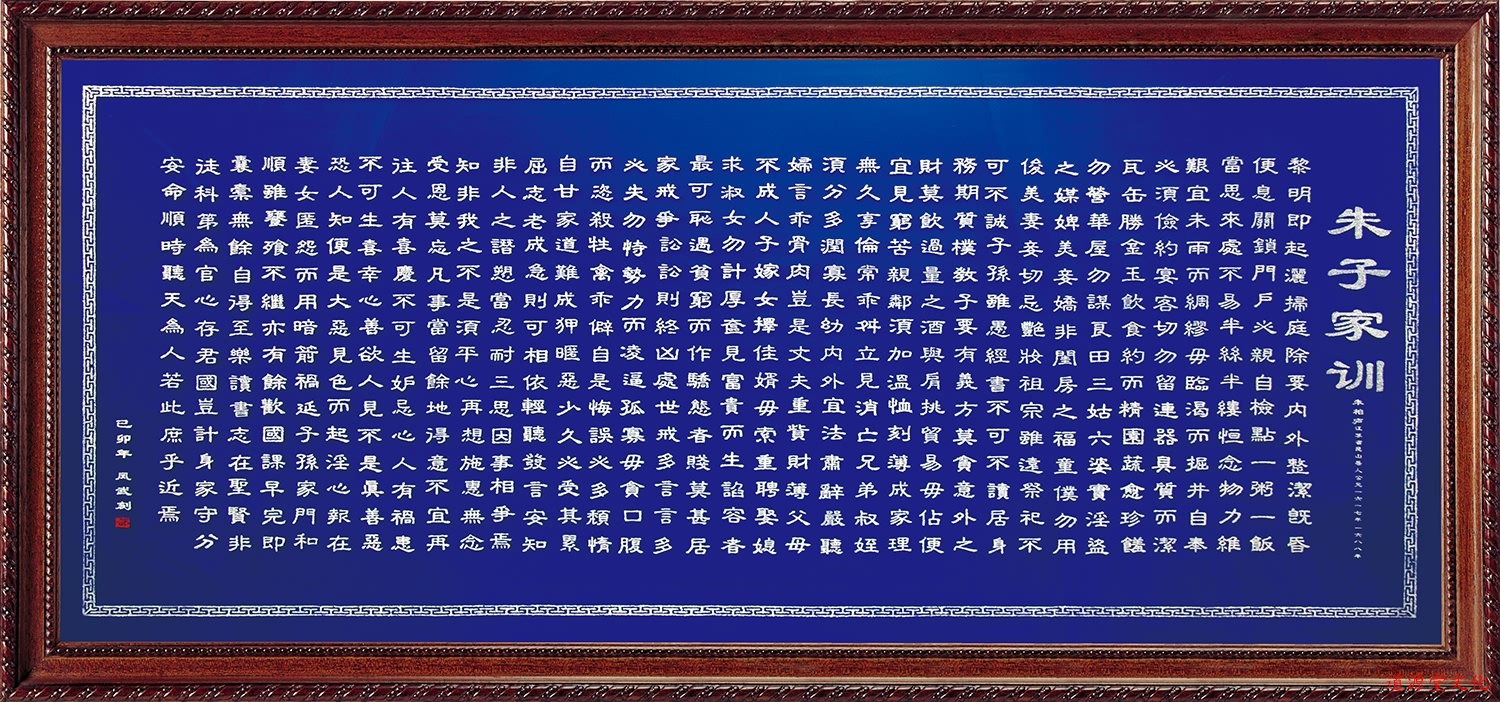 朱子家训
朱柏庐江苏省昆山县人公元一六一七年一六八八年
黎明即起灑掃庭除要内外整潔既昏
便息關鎖門戶必親自檢點一粥一飯
當思來處不易半絲半縷恒念物力維
艱宜未雨而綢繆毋臨渴而掘井自奉
必須儉約宴客切勿留連器具質而潔
瓦缶勝金玉飲食約而精園蔬愈珍饈
勿營華屋勿謀良田三姑六婆實淫盜
之媒婢美妾嬌非閨房之福童僕勿用
俊美妻妾切忌艷妝祖宗雖遠祭祀不
可不誠子孫雖愚經書不可不讀居身
務期質樸教子要有義方莫貪意外之
財莫飲過量之酒與肩挑貿易毋佔便
宜見窮苦親鄰須加溫恤刻薄成家理
無久享倫常乖舛立見消亡兄弟叔姪
須分多潤寡長幼内外宜法肅辭嚴聽
婦言乖骨肉豈是丈夫重貲財薄父母
不成人子嫁女擇佳婿毋索重聘娶媳
求淑女勿計厚奩見富貴而生諂容者
最可恥遇貧窮而作驕態者賤莫甚居
家戒爭訟訟則終凶處世戒多言言多
必失勿恃勢力而凌逼孤寡毋貪口腹
而恣殺牲禽乖僻自是悔誤必多頹惰
自甘家道難成狎暱惡少久必受其累
屈志老成急則可相依輕聽發言安知
非人之譖愬當忍耐三思因事相爭焉
知非我之不是須平心再想施惠無念
受恩莫忘凡事當留餘地得意不宜再
往人有喜慶不可生妒忌心人有禍患
不可生喜幸心善欲人見不是真善惡
恐人知便是大惡見色而起淫心報在
妻女匿怨而用暗箭禍延子孫家門和
順雖饔飧不繼亦有餘歡國課早完即
囊橐無餘自得至樂讀書志在聖賢非
徒科第為官心存君國豈計身家守分
安命順時聽天為人若此庶乎近焉
己卯年 武刻